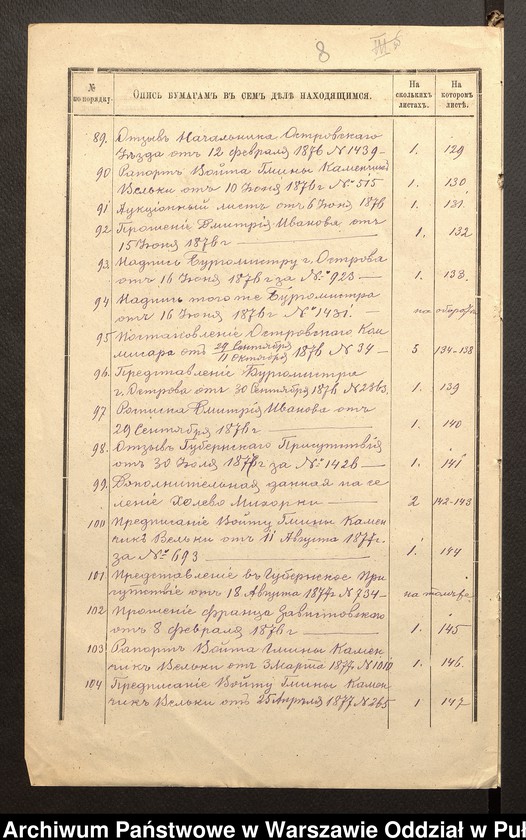 8
№ по порядку.
Опись бумагамъ въ семъ дѣлѣ находящимся.
На сколькихъ листахъ.
На которомъ листѣ.
89. Отзывъ Начальника Островскаго
Уѣзда отъ 12 февраля 1876 № 1439 — 1. 129
90 Рапортъ Войта Гмины Каменчикъ
Вельки отъ 10 Іюня 1876 г № 515 1. 130
91 Аукціонный листъ отъ 6 Іюня 1876 1. 131.
92 Прошеніе Дмитрія Иванова отъ
15 Іюня 1876 г — 1. 132
93 Надпись Бургомистру г. Острова
отъ 16 Іюня 1876 г за № 923 — 1. 138.
94 Надпись того же Бургомистра
отъ 16 Іюня 1876 г № 1431. — на оборотѣ
95 Постановленіе Островскаго Ком
мисара отъ 29 Сентября / 11 Октября 1876 № 34 — 5 134-138
96. Представленіе Бургомистра
г. Острова отъ 30 Сентября 1876 № 2363. 1. 139
97. Росписка Дмитрія Иванова отъ
29 Сентября 1876 г — 1. 140
98. Отзывъ Губернскаго Присутствія
отъ 30 Іюля 1877 г за № 1426 — 1. 141
99. Дополнительная данная на се
леніе Холево Микорки — 2 142-143
100 Предписаніе Войту Гмины Камен
чикъ Вельки отъ 11 Августа 1877 г.
за № 693 — 1. 144
101 Представленіе въ Губернское При
сутствіе отъ 18 Августа 1877 г № 734 — на томъ же
102 Прошеніе Франца Завистовскаго
отъ 8 февраля 1876 г — 1. 145
103 Рапортъ Войта Гмины Камен
чикъ Вельки отъ 3 Марта 1877 № 1010 1. 146.
104 Предписаніе Войту Гмины Камен
чикъ Вельки отъ 25 Апрѣля 1877 № 265 1 147
Archiwum Państwowe w Warszawie Oddział w Puł